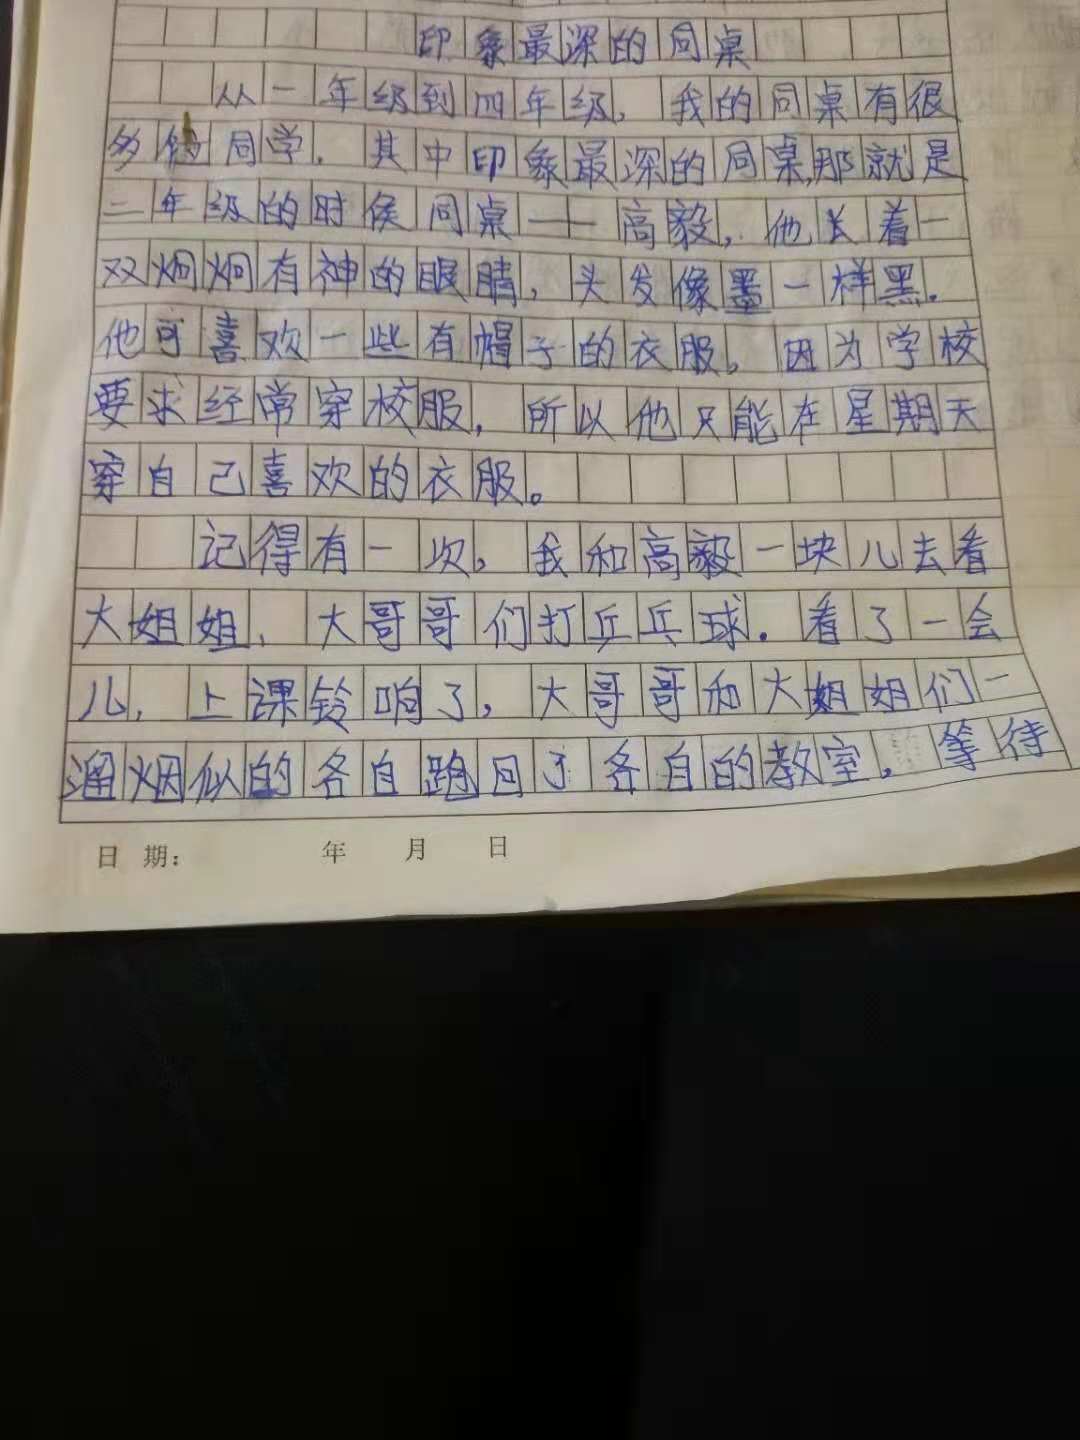 印象最深的同桌
从一年级到四年级，我的同桌有很
多同学．其中印象最深的同桌，那就是
二年级的时侯同桌——高毅，他长着一
双炯炯有神的眼睛，头发像墨一样黑．
他可喜欢一些有帽子的衣服。因为学校
要求经常穿校服，所以他只能在星期天
穿自己喜欢的衣服。
记得有一次，我和高毅一块儿去看
大姐姐、大哥哥们打乒乓球．看了一会
儿，上课铃响了，大哥哥和大姐姐们一
溜烟似的各自跑回了各自的教室，等待
日期： 年 月 日